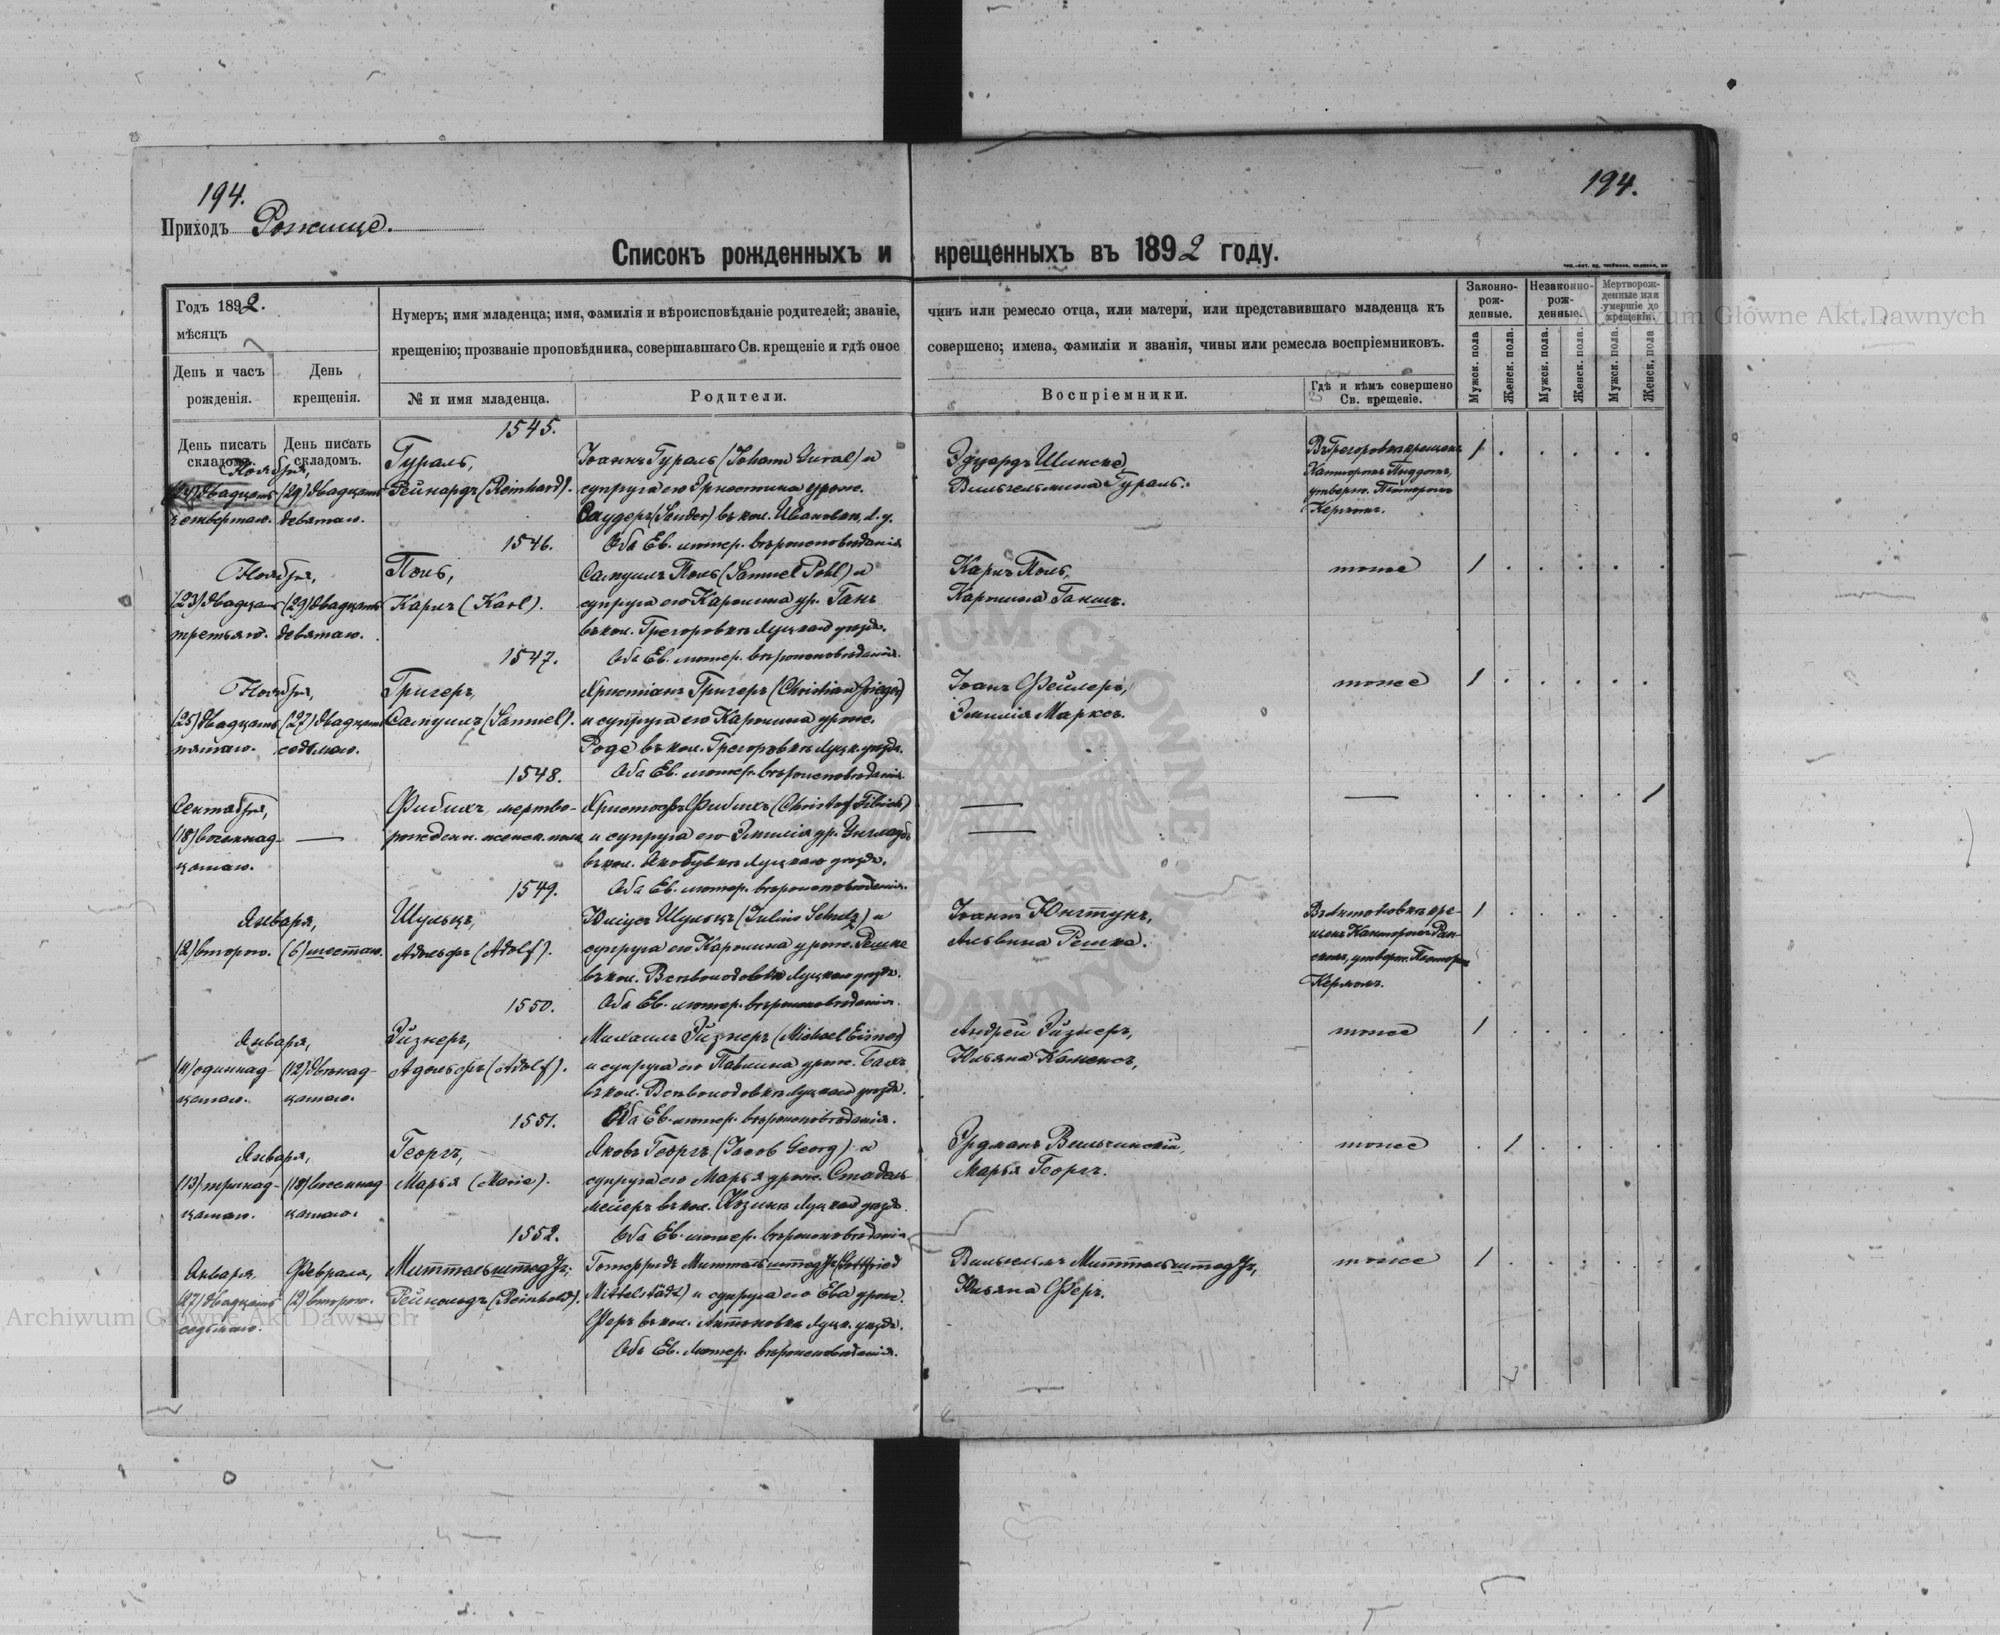 194.
194.
Приходъ Рожище.
Списокъ рожденныхъ и крещенныхъ въ 1892 году.
Годъ 1892.
мѣсяцъ
День и часъ рожденія.
День крещенія.
Нумеръ; имя младенца; имя, фамилія и вѣроисповѣданіе родителей; званіе, чинъ или ремесло отца, или матери, или представившаго младенца къ
крещенію; прозваніе проповѣдника, совершавшаго Св. крещеніе и гдѣ оное совершено; имена, фамиліи и званія, чины или ремесла воспріемниковъ.
№ и имя младенца.
Родители.
Воспріемники.
Гдѣ и кѣмъ совершено
Св. крещеніе.
Законно-
рож-
денные.
Незаконно-
рож-
денные.
Мертворож-
денные или
умершіе до
крещенія.
Мужск. пола
Женск. пола.
Мужск. пола.
Женск. пола.
Мужск. пола.
Женск. пола
День писать
складомъ.
День писать
складомъ.
1545.
Ноября,
(24) двадцать
четвертаго.
(29) двадцать
девятаго.
Гураль,
Рейнардъ (Reinhard).
Іоаннъ Гураль (Johann Gural) и
супруга его Эрнестина урож.
Саудеръ (Sauder) въ кол. Ивановкѣ, Л. у.
Оба Ев. лютер. вѣроисповѣданія
Эдуардъ Шинске,
Вильгельмина Гураль.
Въ Грегоровкѣ крещенъ
Канторомъ
утверж. Пасторомъ
Кермомъ.
1
1546.
Ноября,
(23) двадцать
третьяго.
(29) двадцать
девятаго.
Поль,
Карлъ (Karl).
Самуилъ Поль (Samuel Pohl) и
супруга его Каролина ур. Ганъ
въ кол. Грегоровкѣ Луцкаго уѣзда.
Оба Ев. лютер. вѣроисповѣданія.
Карлъ Поль,
Каролина Ганшъ.
тоже
1
1547.
Ноября,
(25) двадцать
пятаго.
(27) двадцать
седьмаго.
Григеръ,
Самуилъ (Samuel).
Христіанъ Григеръ (Christian Grieger)
и супруга его Каролина урож.
Роде въ кол. Грегоровкѣ Луцк. уѣзда.
Оба Ев. лютер. вѣроисповѣданія.
Іоанъ Фейлеръ,
Эмилія Марксъ.
тоже
1
1548.
Сентября,
(18) восемнад-
цатаго.
Фибихъ, мертво-
рожденн. женск. пола
Христофъ Фибихъ (Christof Fibich)
и супруга его Эмилія ур.
въ кол. Якобувкѣ Луцкаго уѣзда.
Оба Ев. лютер. вѣроисповѣданія.
1
1549.
Января,
(2) второго.
(6) шестаго.
Шульцъ,
Адольфъ (Adolf).
Юліусъ Шульцъ (Julius Schulz) и
супруга его Каролина урож. Решке
въ кол. Луцкаго уѣзда.
Оба Ев. лютер. вѣроисповѣданія.
Іоаннъ Юнгтунъ,
Альвина Решка.
Въ Антоновкѣ кре-
щенъ Канторомъ
утверж. Пасторомъ
Кермомъ.
1
1550.
Января,
(11) одиннад-
цатаго.
(12) двѣнад-
цатаго.
Эйзнеръ,
Адольфъ (Adolf).
Михаилъ Эйзнеръ (Michael Eisner)
и супруга его Павлина урож. Бахъ
въ кол. Луцкаго уѣзда.
Оба Ев. лютер. вѣроисповѣданія.
Андрей Эйзнеръ,
Юльяна
тоже
1
1551.
Января,
(13) тринад-
цатаго.
(18) восемнад-
цатаго.
Георгъ,
Марья (Marie).
Яковъ Георгъ (Jacob Georg) и
супруга его Марья урож. Стадель-
мейеръ въ кол. Луцкаго уѣзда.
Оба Ев. лютер. вѣроисповѣданія
Эрдманъ Вильчинскій,
Марья Георгъ.
тоже
1
1552.
Января,
(27) двадцать
седьмаго.
Февраля,
(2) второго.
Миттельштедтъ,
Рейнольдъ (Reinhold).
Готфридъ Миттельштедтъ (Gottfried
Mittelstädt) и супруга его Ева урож.
Феръ въ кол. Антоновкѣ Луцк. уѣзда.
Оба Ев. лютер. вѣроисповѣданія.
Вильгельмъ Миттельштедтъ,
Юльяна Феръ.
тоже
1
Archiwum Główne Akt Dawnych
Archiwum Główne Akt Dawnych